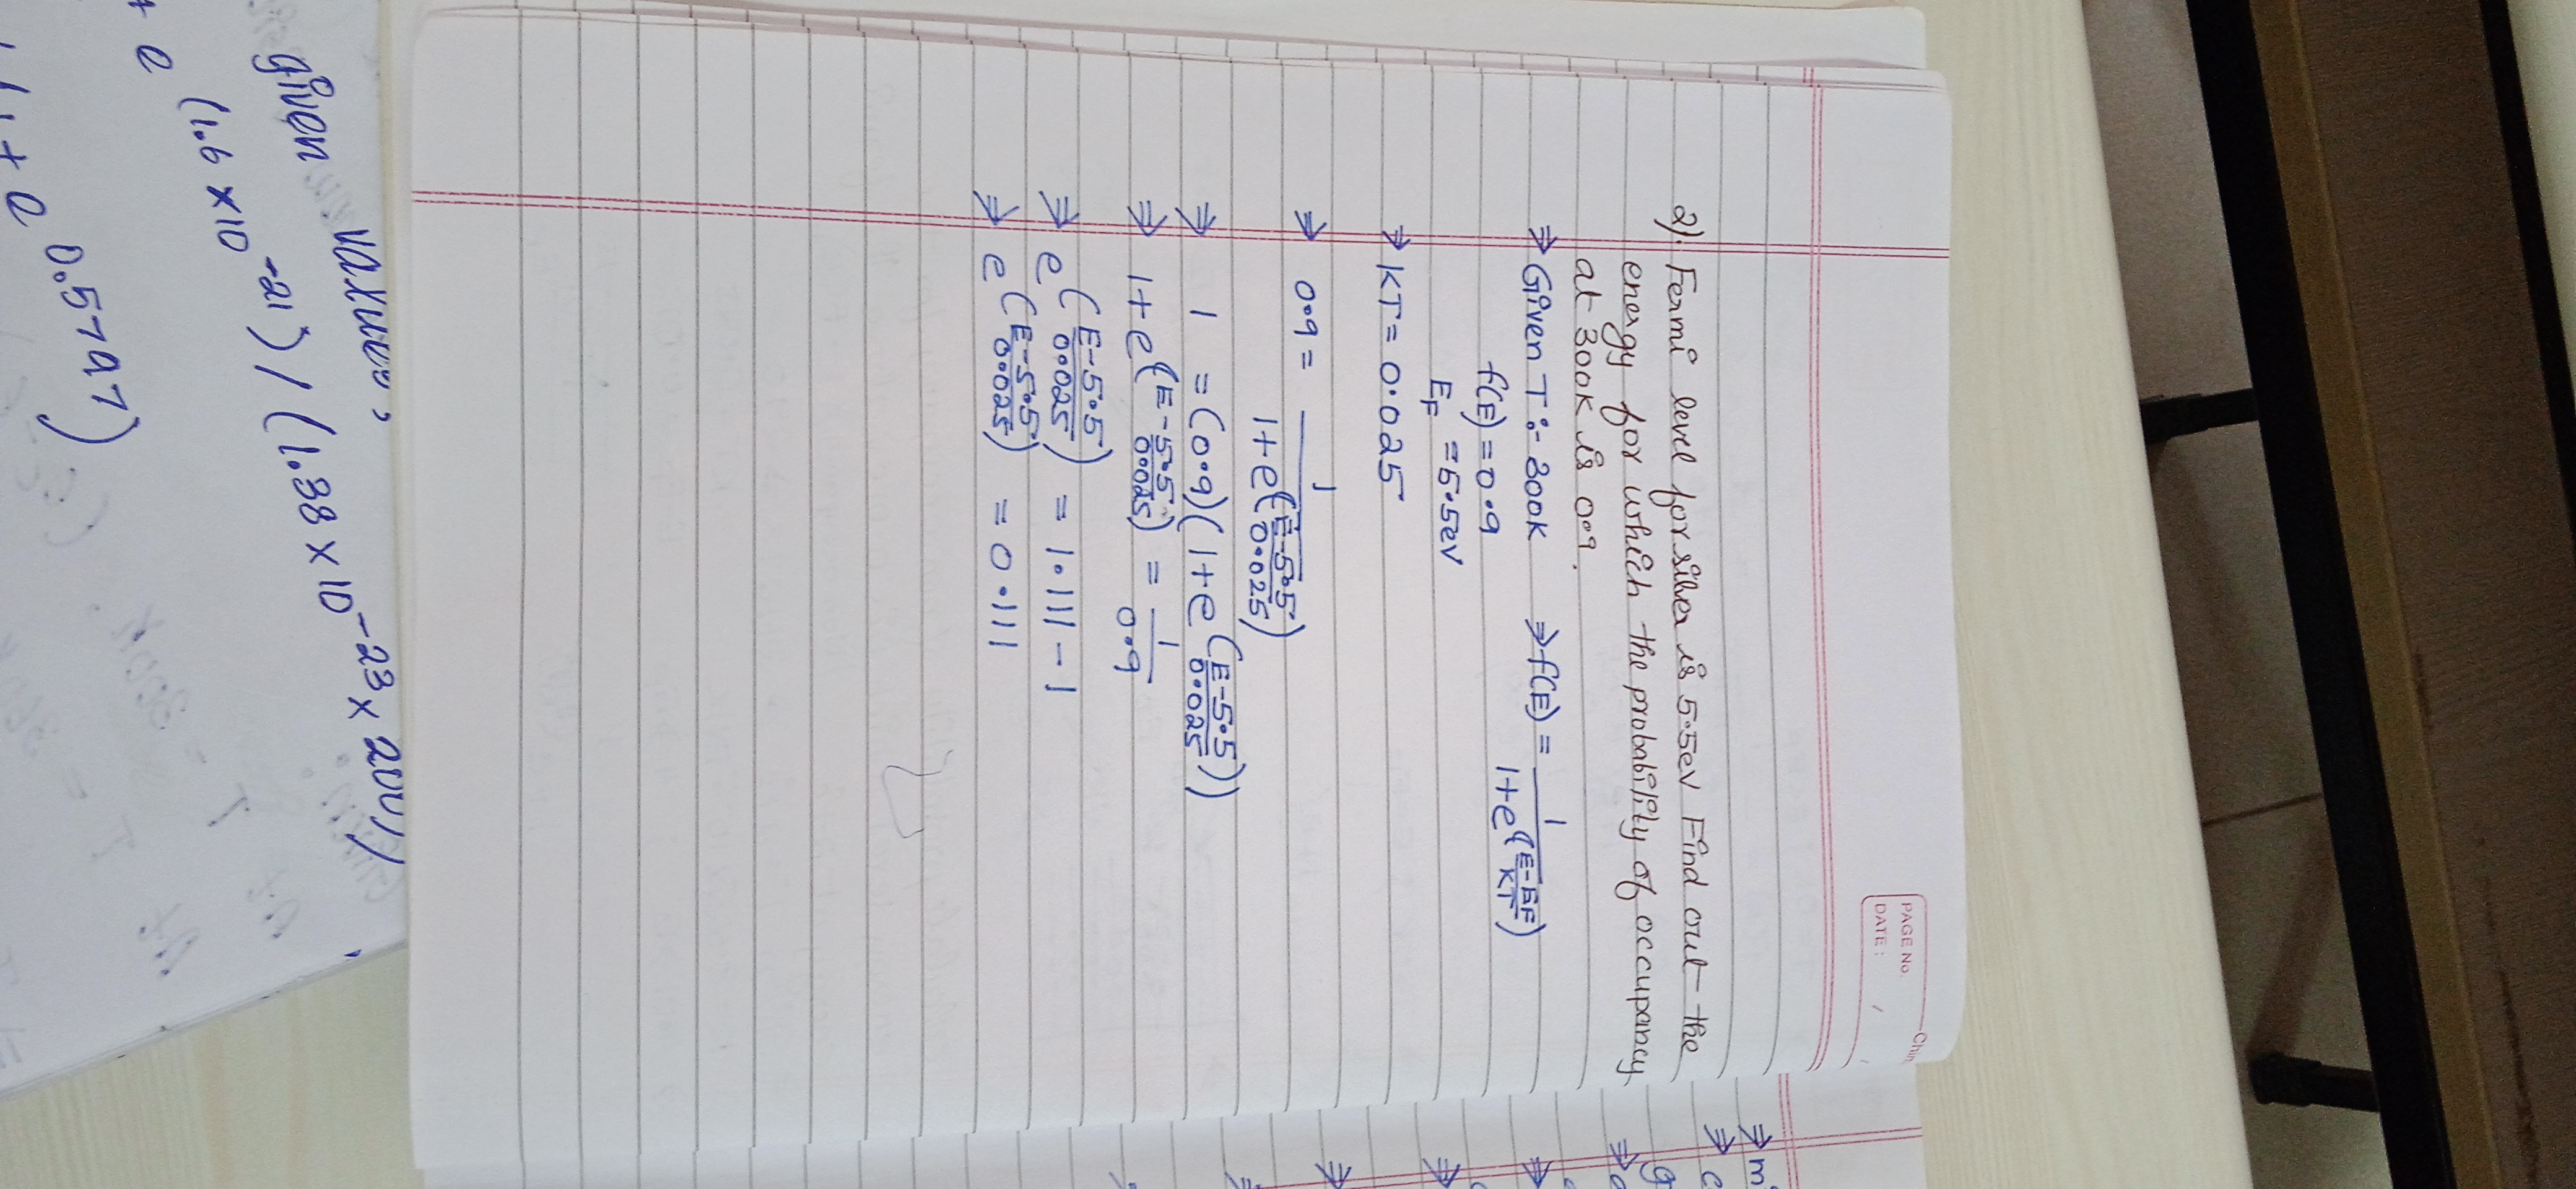 PAGE No.
DATE : / /
2). Fermi level for silver is 5.5ev Find out the
energy for which the probability of occupancy
at 300k is 0.9.
⇒ Given T :- 300K ⇒ f(E) = 1 / 1+e^((E-EF)/KT)
f(E) = 0.9
EF = 5.5ev
⇒ KT = 0.025
⇒ 0.9 = 1 / 1+e^((E-5.5)/0.025)
⇒ 1 = (0.9)(1+e^((E-5.5)/0.025))
⇒ 1+e^((E-5.5)/0.025) = 1/0.9
⇒ e^((E-5.5)/0.025) = 1.111 - 1
⇒ e^((E-5.5)/0.025) = 0.111
given values,
e (1.6 × 10^-21) / (1.38 × 10^-23 × 200))
1 + e^0.5797)